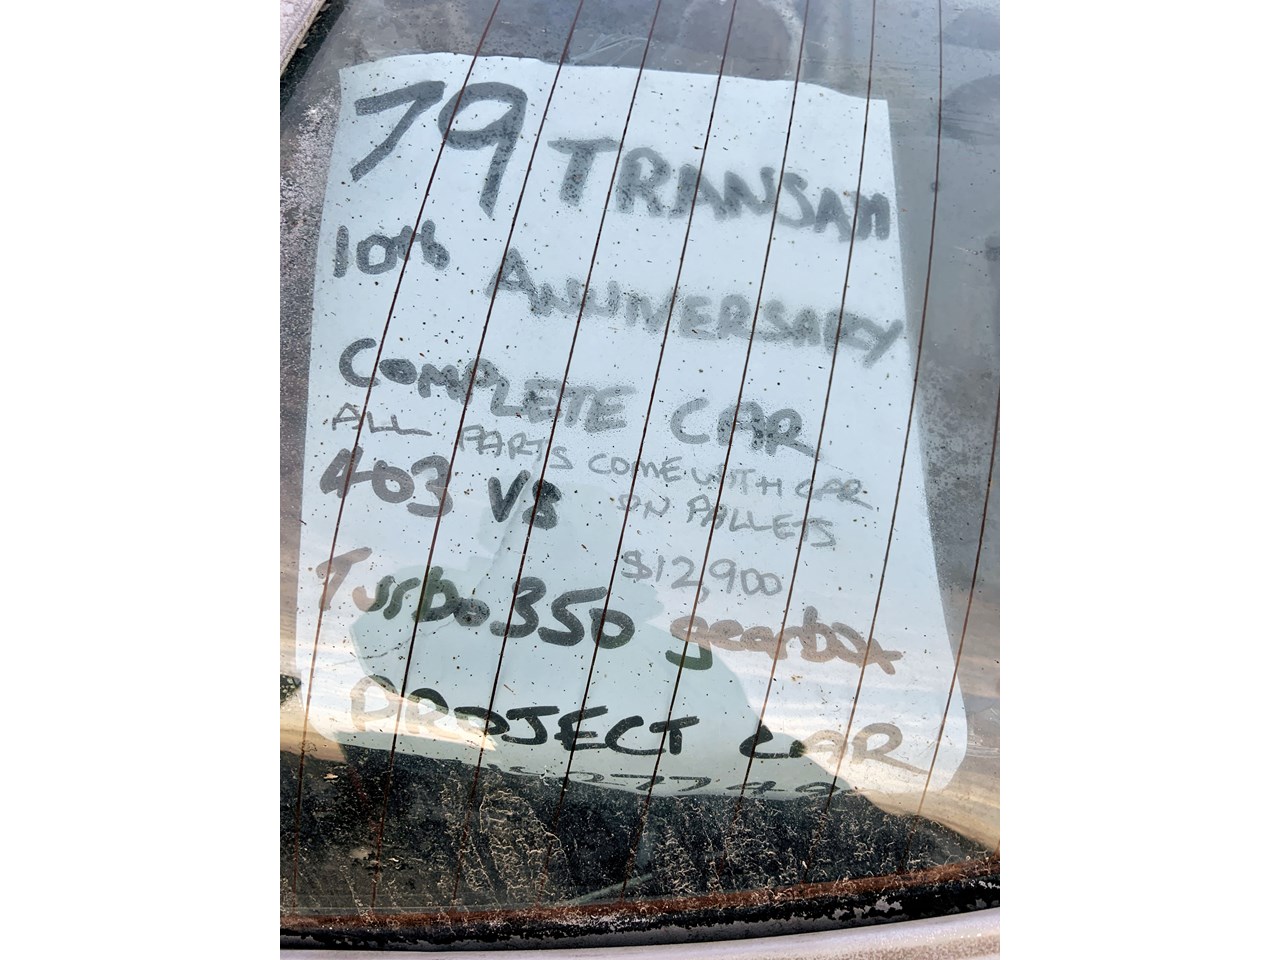 79 TRANSAM
10th ANNIVERSARY
COMPLETE CAR
ALL PARTS COME WITH CAR
ON PALLETS
403 V8
$12,900
Turbo 350 gearbox
PROJECT CAR